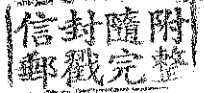 信封隨附
郵戳完整